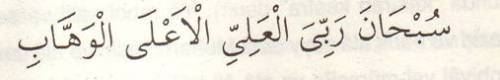 سُبْحَانَ رَبِّىَ الْعَلِىِّ الْاَعْلَى الْوَهَّابِ